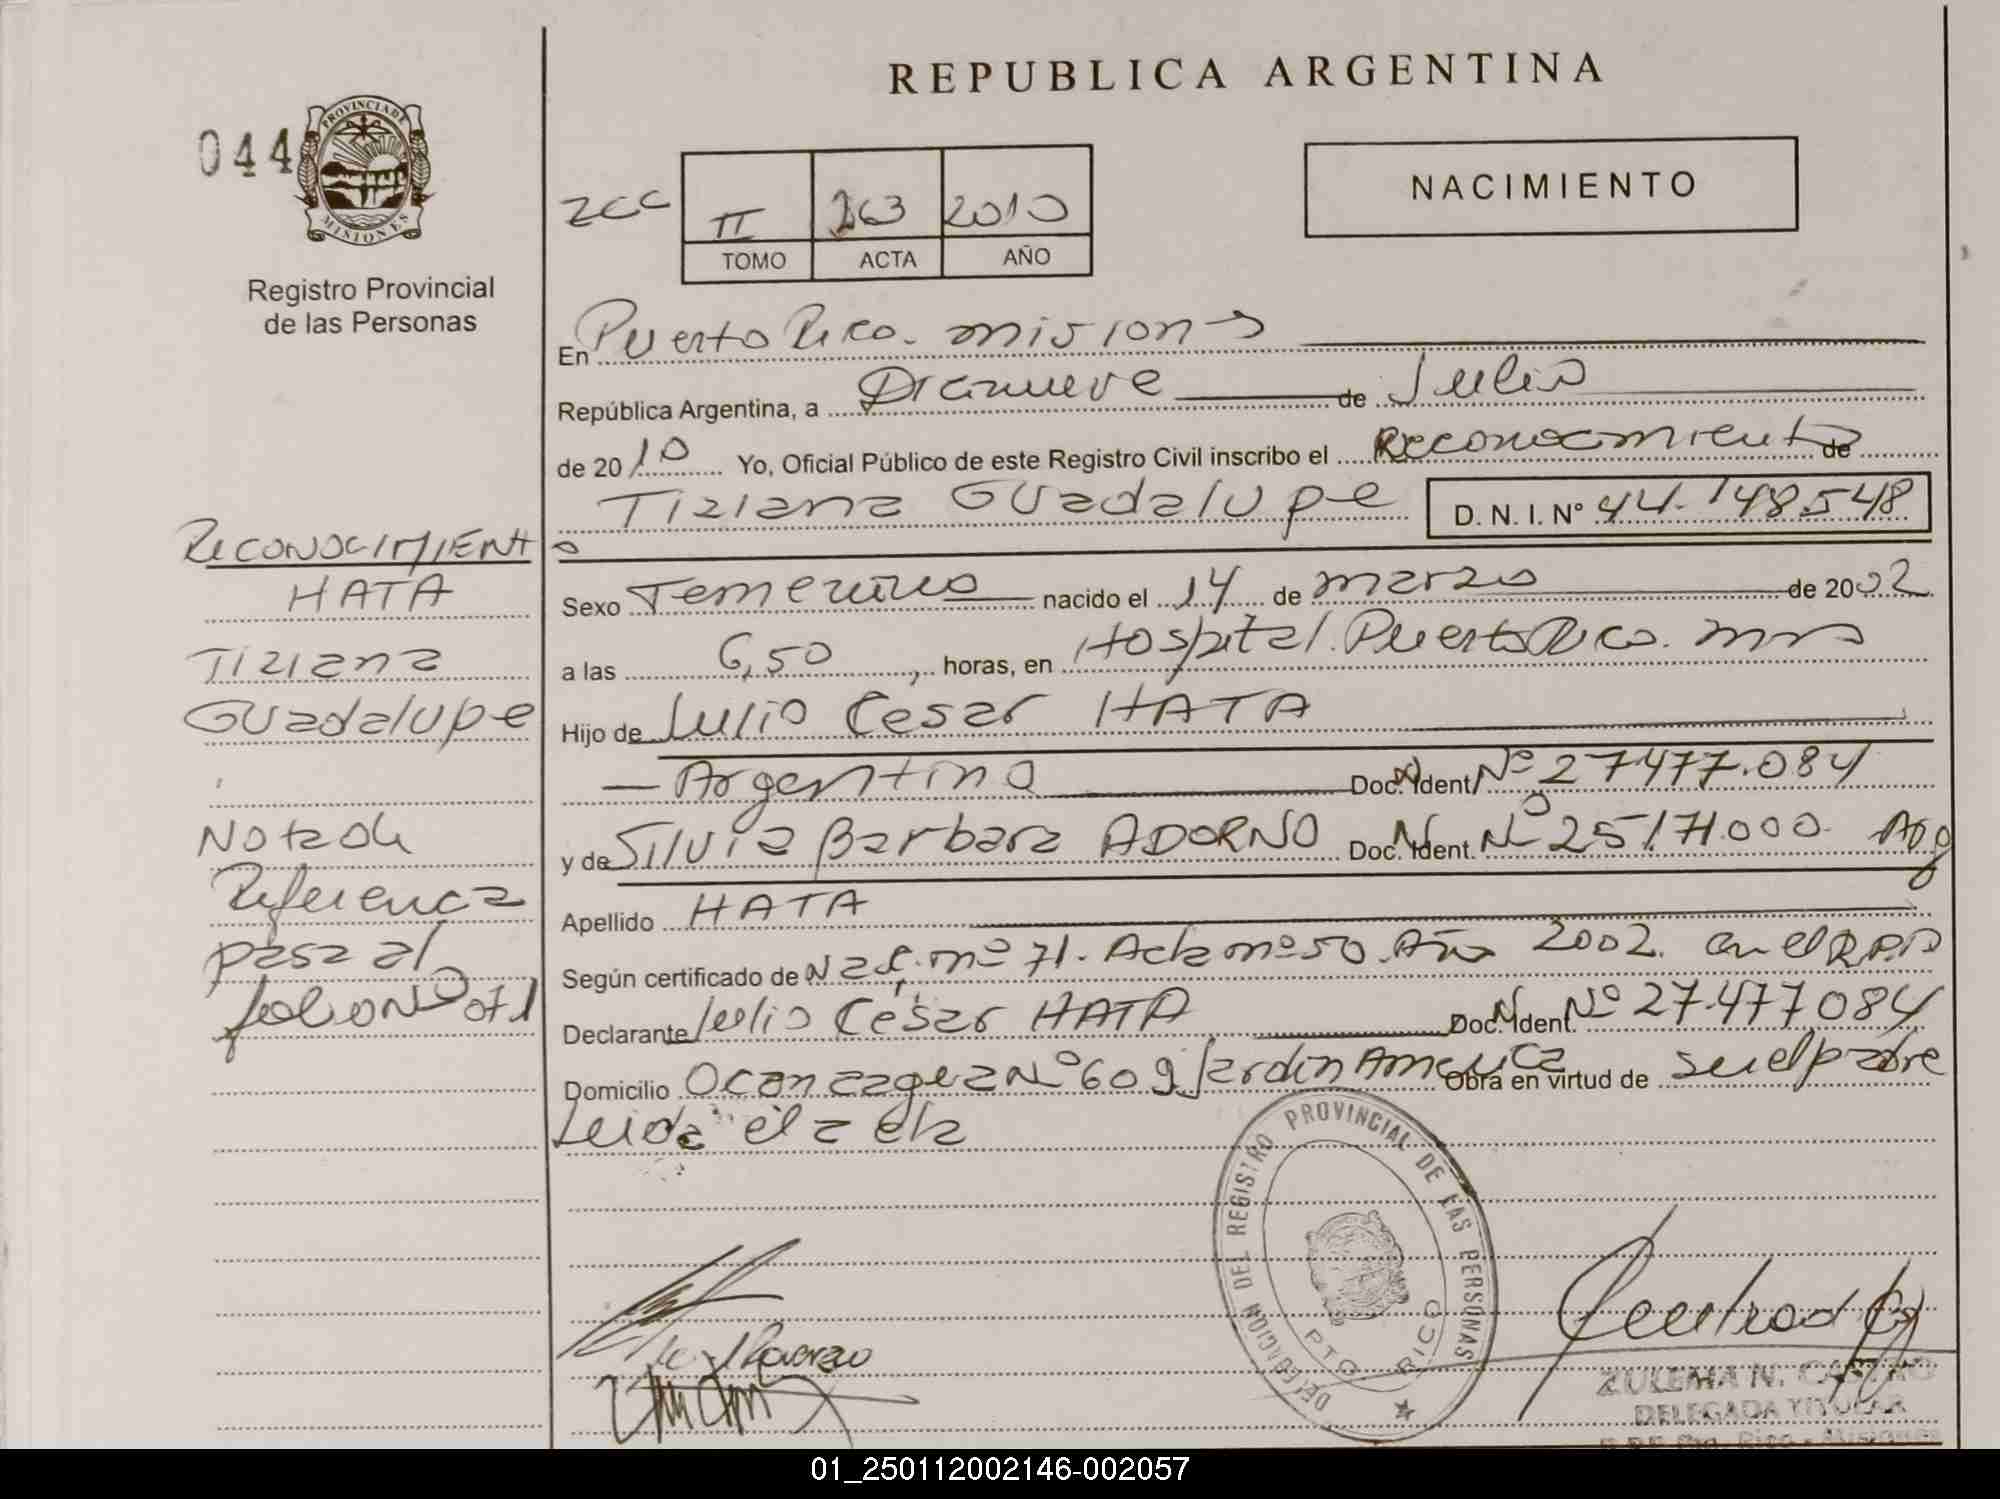 REPUBLICA ARGENTINA
044
PROVINCIA DE
MISIONES
Registro Provincial
de las Personas
II 263 2010
TOMO ACTA AÑO
NACIMIENTO
En Puerto Rico. misiones
República Argentina, a Diecinueve de Julio
de 2010 Yo, Oficial Público de este Registro Civil inscribo el Reconocimiento de
Tiziana Guadalupe D. N. I. N° 44.148.548
Sexo Femenino nacido el 14 de marzo de 2002
a las 6,50 horas, en Hospital. Puerto Rico. mns
Hijo de Julio Cesar HATA
Argentino Doc. Ident. N° 27477.084
y de Silvia Barbara ADORNO Doc. Ident. N° 25171.000 Arg
Apellido HATA
Según certificado de Nac. n° 71. Acta n° 50. Año 2002. en el R.P.P
Declarante Julio César HATA Doc. Ident. N° 27.477 084
Domicilio N° 609 Jardin America Obra en virtud de ser el padre
Leida el acta
RECONOCIMIENTO
HATA
Tiziana
Guadalupe
Nota de
Referencia
pasa al
folio N° 071
DELEGACION DEL REGISTRO PROVINCIAL DE LAS PERSONAS
PTO RICO
ZULEMA N. CASTRO
DELEGADA TITULAR
Pto. Rico - Misiones
01_250112002146-002057